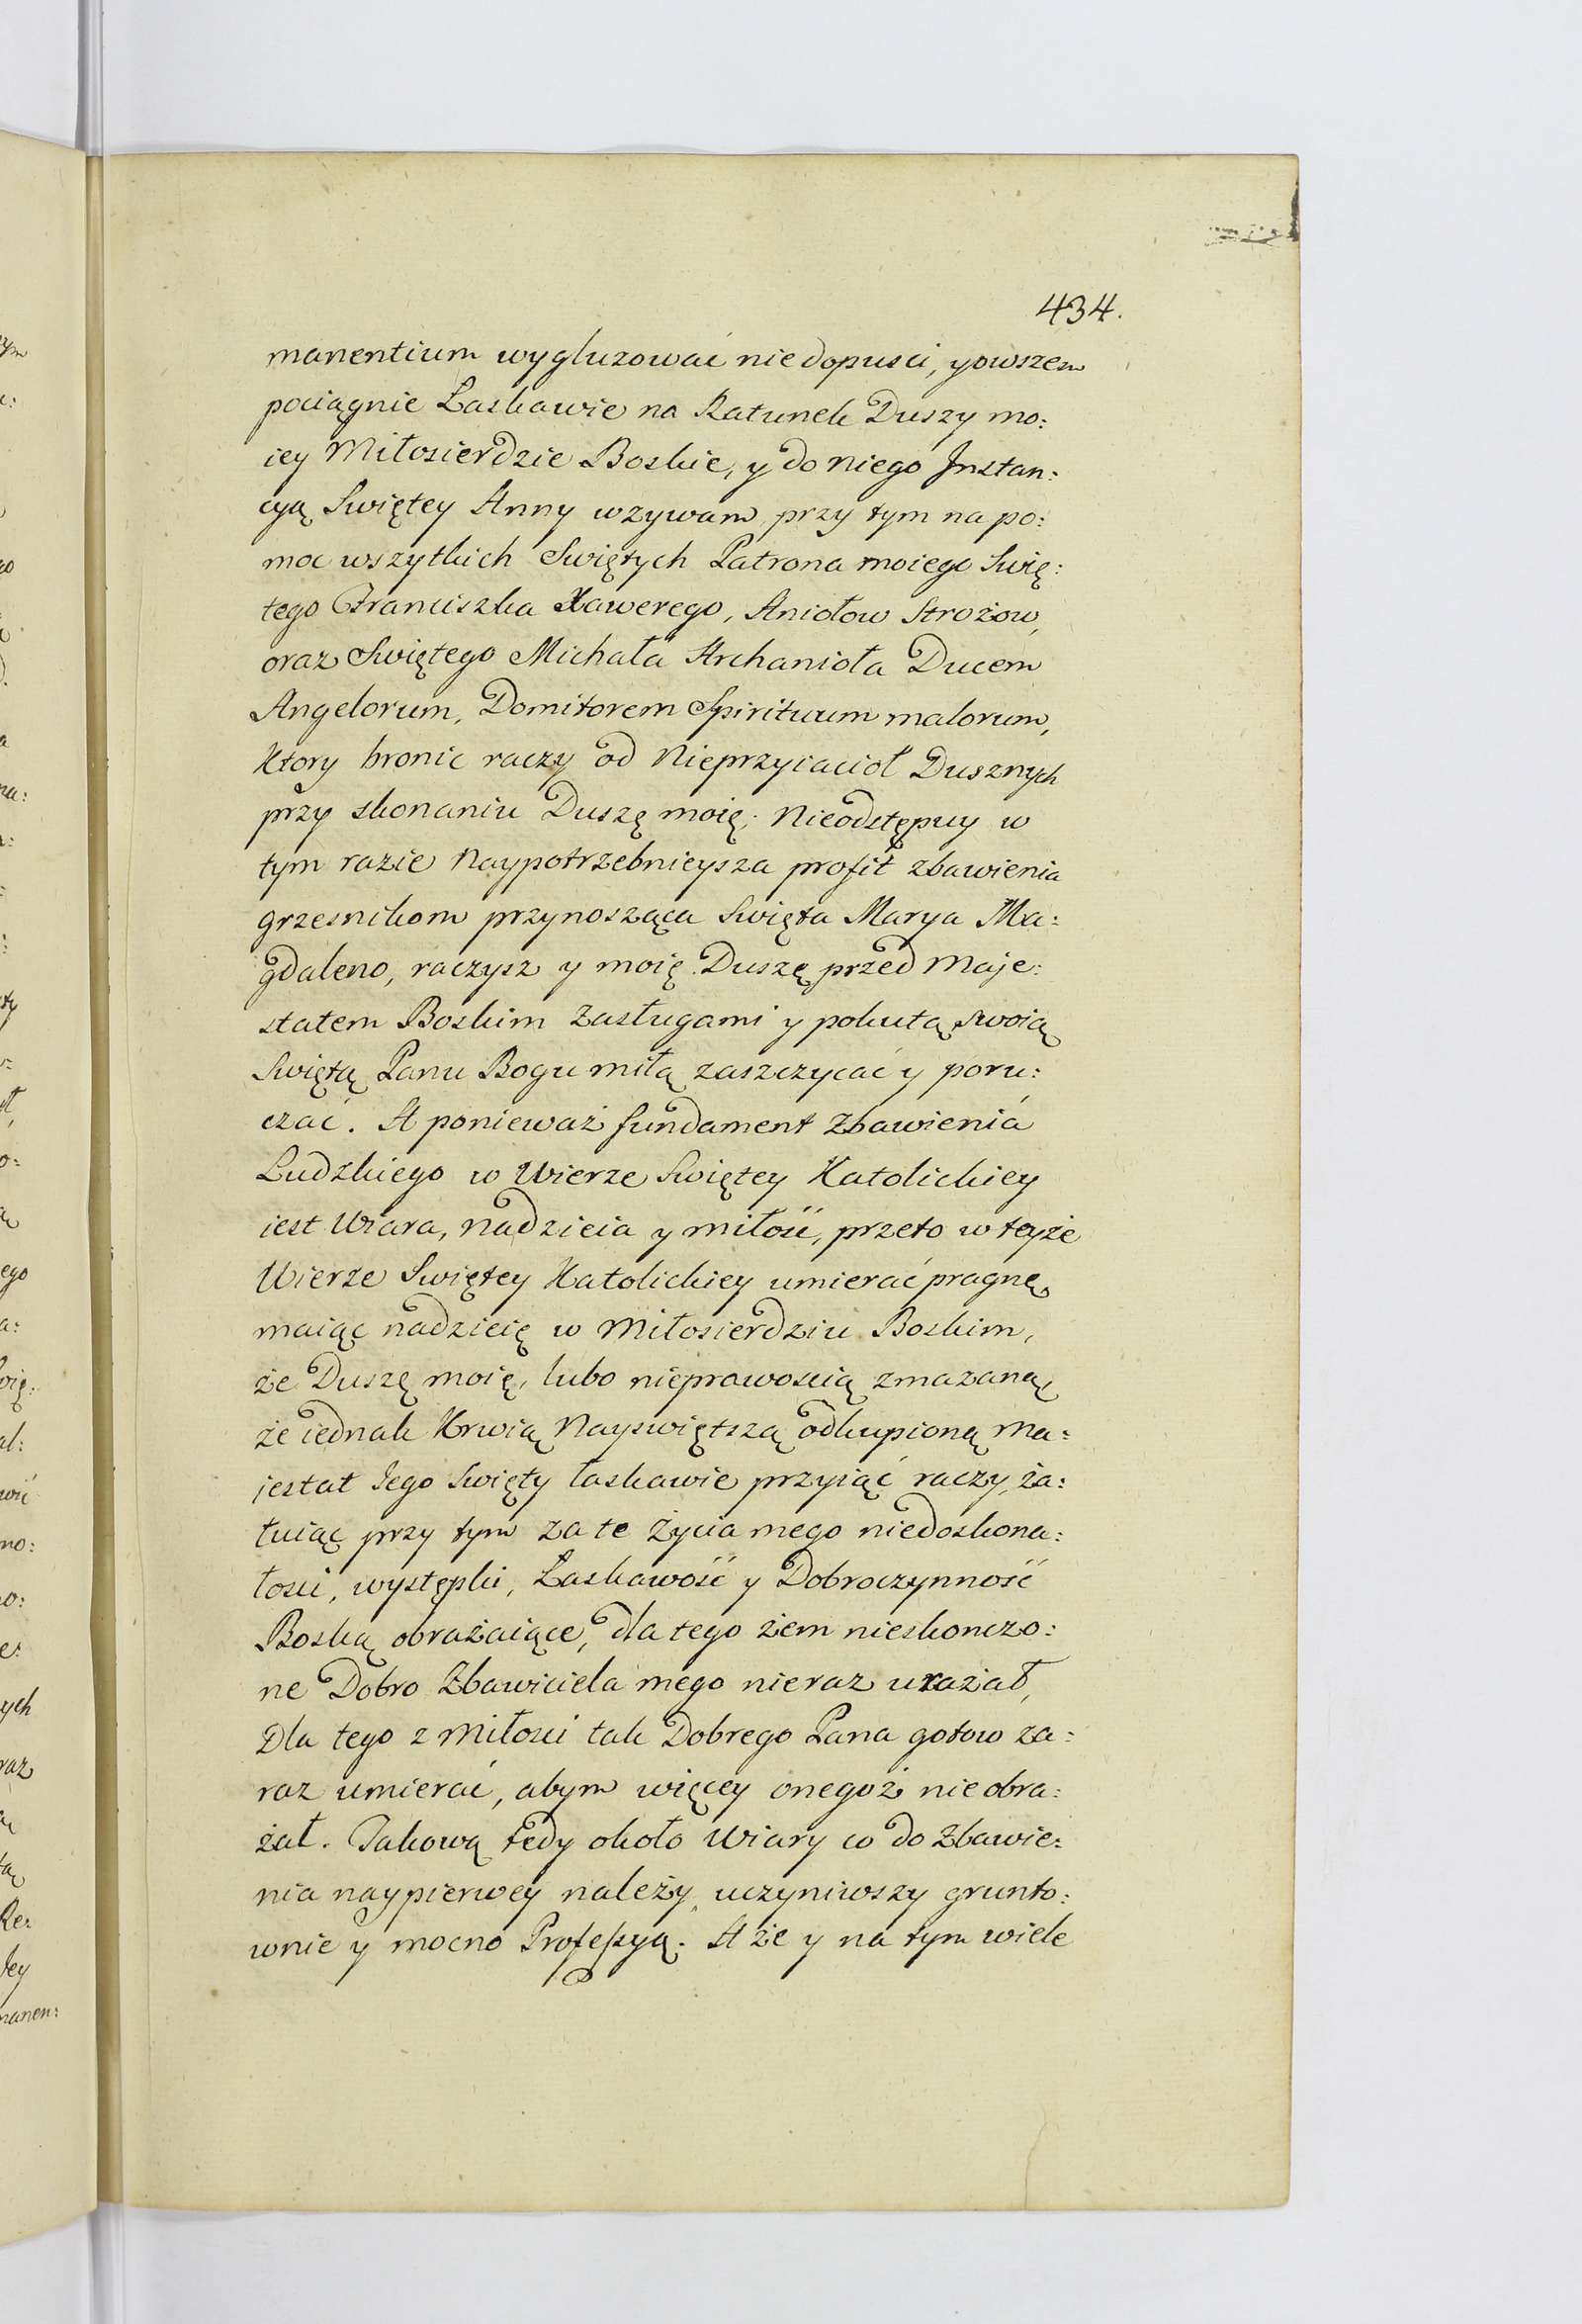 434.
manentium wygluzować niedopusci, yowszem
pociągnie Łaskawie na Ratunek Duszy mo:
iey Miłosierdzie Boskie, y do niego Jnstan:
cyą Swiętey Anny wzywam, przy tym na po:
moc wszytkich Swiętych Patrona moiego Swię:
tego Franciszka Xawerego, Aniołow Strożow,
oraz Swiętego Michała Archanioła Ducem
Angelorum, Domitorem Spirituum malorum,
Ktory bronic raczy od Nieprzyiacioł Dusznych
przy skonaniu Duszę moię; Nieodstępuy w
tym razie Naypotrzebnieysza profit zbawienia
grzesnikom przynosząca Swięta Marya Ma:
gdaleno, raczysz y moię Duszę przed Maje:
statem Boskim Zasługami y pokutą swoią
Swiętą Panu Bogu miłą zaszczycać y poru:
czać. A ponieważ fundament Zbawienia
Ludzkiego w Wierze Swiętey Katolickiey
iest Wiara, Nadzieia y miłość, przeto w teyże
Wierze Swiętey Katolickiey umierać pragnę,
maiąc nadzieię w Miłosierdziu Boskim,
że Duszę moię, lubo nieprawoscią zmazaną,
że iednak Krwią Nayswiętszą odkupioną Ma:
jestat Jego Swięty łaskawie przyiąć raczy, ża:
łuiąc przy tym za te Życia mego niedoskona:
łosci, występki, Łaskawość y Dobroczynność
Boską obrażaiące, dla tego żem nieskonczo:
ne Dobro Zbawiciela mego nieraz urażał,
Dla tego z Miłosci tak Dobrego Pana gotow za:
raz umierać, abym więcey onegoż nie obra:
żał. Takową tedy około Wiary co do Zbawie:
nia naypierwey należy, uczyniwszy grunto:
wnie y mocno Professyą. A że y na tym wiele